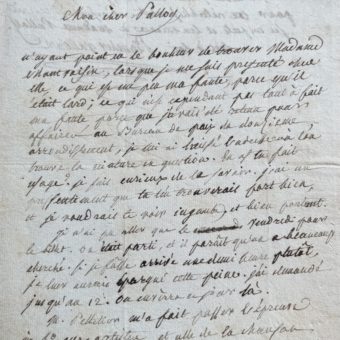 Mon cher Palloy,
n'ayant point eu le bonheur de trouver Madame
lorsque je me suis présenté chez
elle, ce qui est un peu ma faute, parce qu'il
était tard; ce qui n'est cependant pas tout à fait
ma faute parce que j'avais été retenu pour
affaire au Bureau de paix du douzième
arrondissement, je lui ai laissé
la ceinture en question. En as tu fait
usage? je suis curieux de le savoir. j'ai un
pressentiment que tu t'en trouverais fort bien,
et je voudrais te voir ingambe et bien portant.
je n'ai pu aller que le vendredi pour
le billet. On était parti, et il paraît qu'on a beaucoup
cherché. Si je fusse arrivé une demi heure plutôt,
je leur aurais épargné cette peine. j'ai demandé
jusqu'au 12. On
m'a fait passer l'épreuve
et elle de la chanson